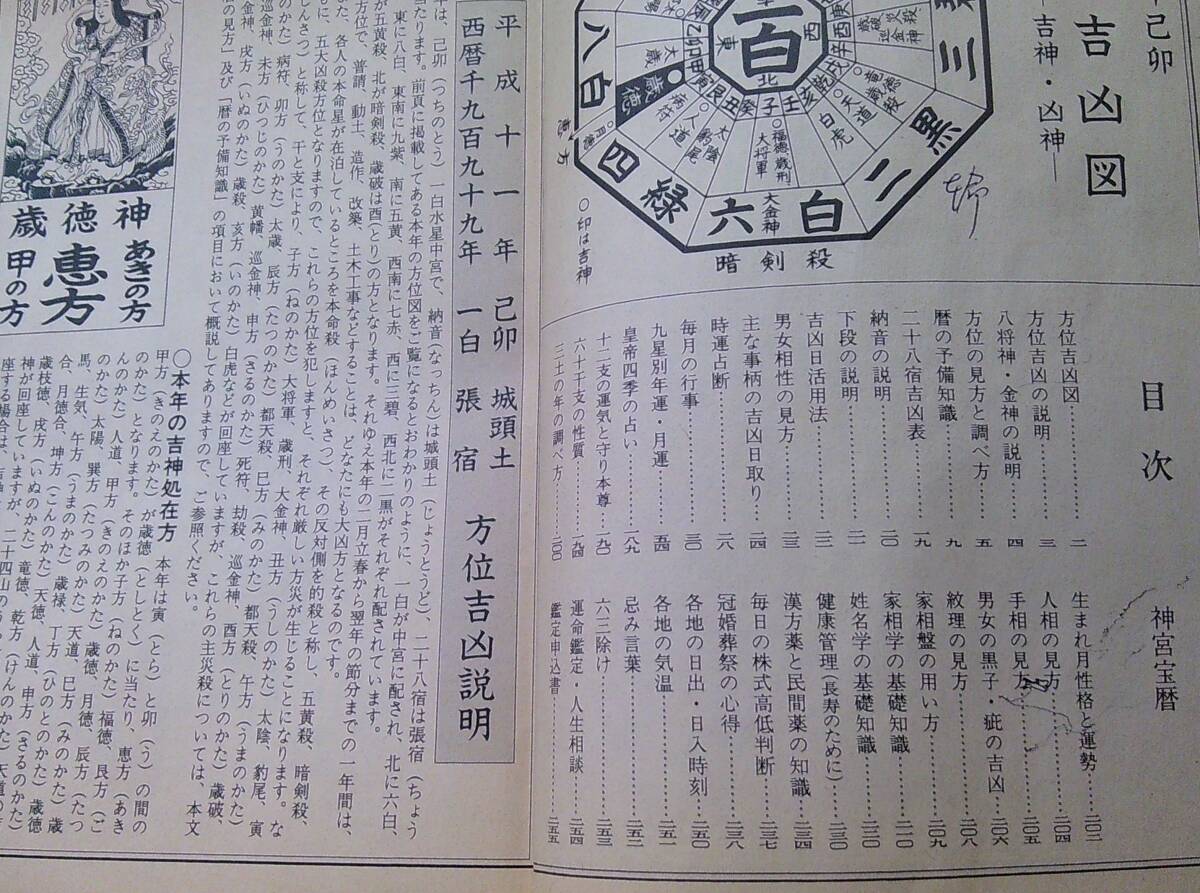 己卯
吉凶図
―吉神・凶神―
一白
北
東
西
八白
三
黒
二
白
六
緑
四
歳徳
太歳
病符
人道
大陰
豹尾
福徳
歳刑
大将軍
大金神
白虎
天道
暗剣殺
○印は吉神
目次
神宮宝暦
方位吉凶図……二
方位吉凶の説明……三
八将神・金神の説明……四
方位の見方と調べ方……五
暦の予備知識……九
二十八宿吉凶表……一九
納音の説明……二〇
下段の説明……二一
吉凶日活用法……二二
男女相性の見方……二三
主な事柄の吉凶日取り……二四
時運占断……二八
毎月の行事……三〇
九星別年運・月運……五四
皇帝四季の占い……一八九
十二支の運気と守り本尊……一九〇
六十干支の性質……一九四
三土の年の調べ方……二〇〇
生まれ月性格と運勢……二〇二
人相の見方……二〇四
手相の見方……二〇五
男女の黒子・疵の吉凶……二〇六
紋理の見方……二〇八
家相盤の用い方……二〇九
家相学の基礎知識……二一〇
姓名学の基礎知識……二二〇
健康管理(長寿のために)……二三〇
漢方薬と民間薬の知識……二三四
毎日の株式高低判断……二三七
冠婚葬祭の心得……二三八
各地の日出・日入時刻……二五〇
各地の気温……二五一
忌み言葉……二五二
六三除け……二五三
運命鑑定・人生相談……二五四
鑑定申込書……二五五
平成十一年 己卯 城頭土
西暦千九百九十九年 一白 張宿
方位吉凶説明
年は、己卯(つちのとう)一白水星中宮で、納音(なっちん)は城頭土(じょうとうど)、二十八宿は張宿(ちょう
当たります。前頁に掲載してある本年の方位図をご覧になるとおわかりのように、一白が中宮に配され、北に六白、
東に八白、東南に九紫、南に五黄、西南に七赤、西に三碧、西北に二黒がそれぞれ配されています。
が五黄殺、北が暗剣殺、歳破は酉(とり)の方となります。それゆえ本年の二月立春から翌年の節分までの一年間は、
方位で、普請、動土、造作、改築、土木工事などとすることは、どなたにも大凶方となるのです。
また、各人の本命星が在泊しているところを本命殺(ほんめいさつ)、その反対側を的殺と称し、五黄殺、暗剣殺、
に、五大凶殺方位となりますので、これらの方位を犯しますと、それぞれ厳しい方災が生じることになります。な
んさつ)と称して、干と支により、子方(ねのかた)大将軍、歳刑、大金神、丑方(うしのかた)太陰、豹尾、寅
のかた)病符、卯方(うのかた)太歳、辰方(たつのかた)都天殺、巳方(みのかた)都天殺、午方(うまのかた)
巡金神、未方(ひつじのかた)黄幡、巡金神、申方(さるのかた)死符、劫殺、巡金神、酉方(とりのかた)歳破、
金神、戌方(いぬのかた)歳殺、亥方(いのかた)白虎などが回座していますが、これらの主災殺については、本文
の見方」及び「暦の予備知識」の項目において概説してありますので、ご参照ください。
○本年の吉神処在方 本年は寅(とら)と卯(う)の間の
甲方(きのえのかた)が歳徳(としとく)に当たり、恵方(あき
のかた)となります。そのほか子方(ねのかた)福徳、艮方(ご
んのかた)人道、甲方(きのえのかた)歳徳、月徳、辰方(たつ
のかた)太陽、巽方(たつみのかた)天道、巳方(みのかた)歳
馬、生気、午方(うまのかた)歳禄、丁方(ひのとのかた)歳徳
合、月徳合、坤方(こんのかた)天徳、人道、申方(さるのかた)
歳枝徳、戌方(いぬのかた)竜徳、乾方(けんのかた)天道の
神が回座していますが、二十四山の
神
徳
歳
あきの方
恵方
甲の方